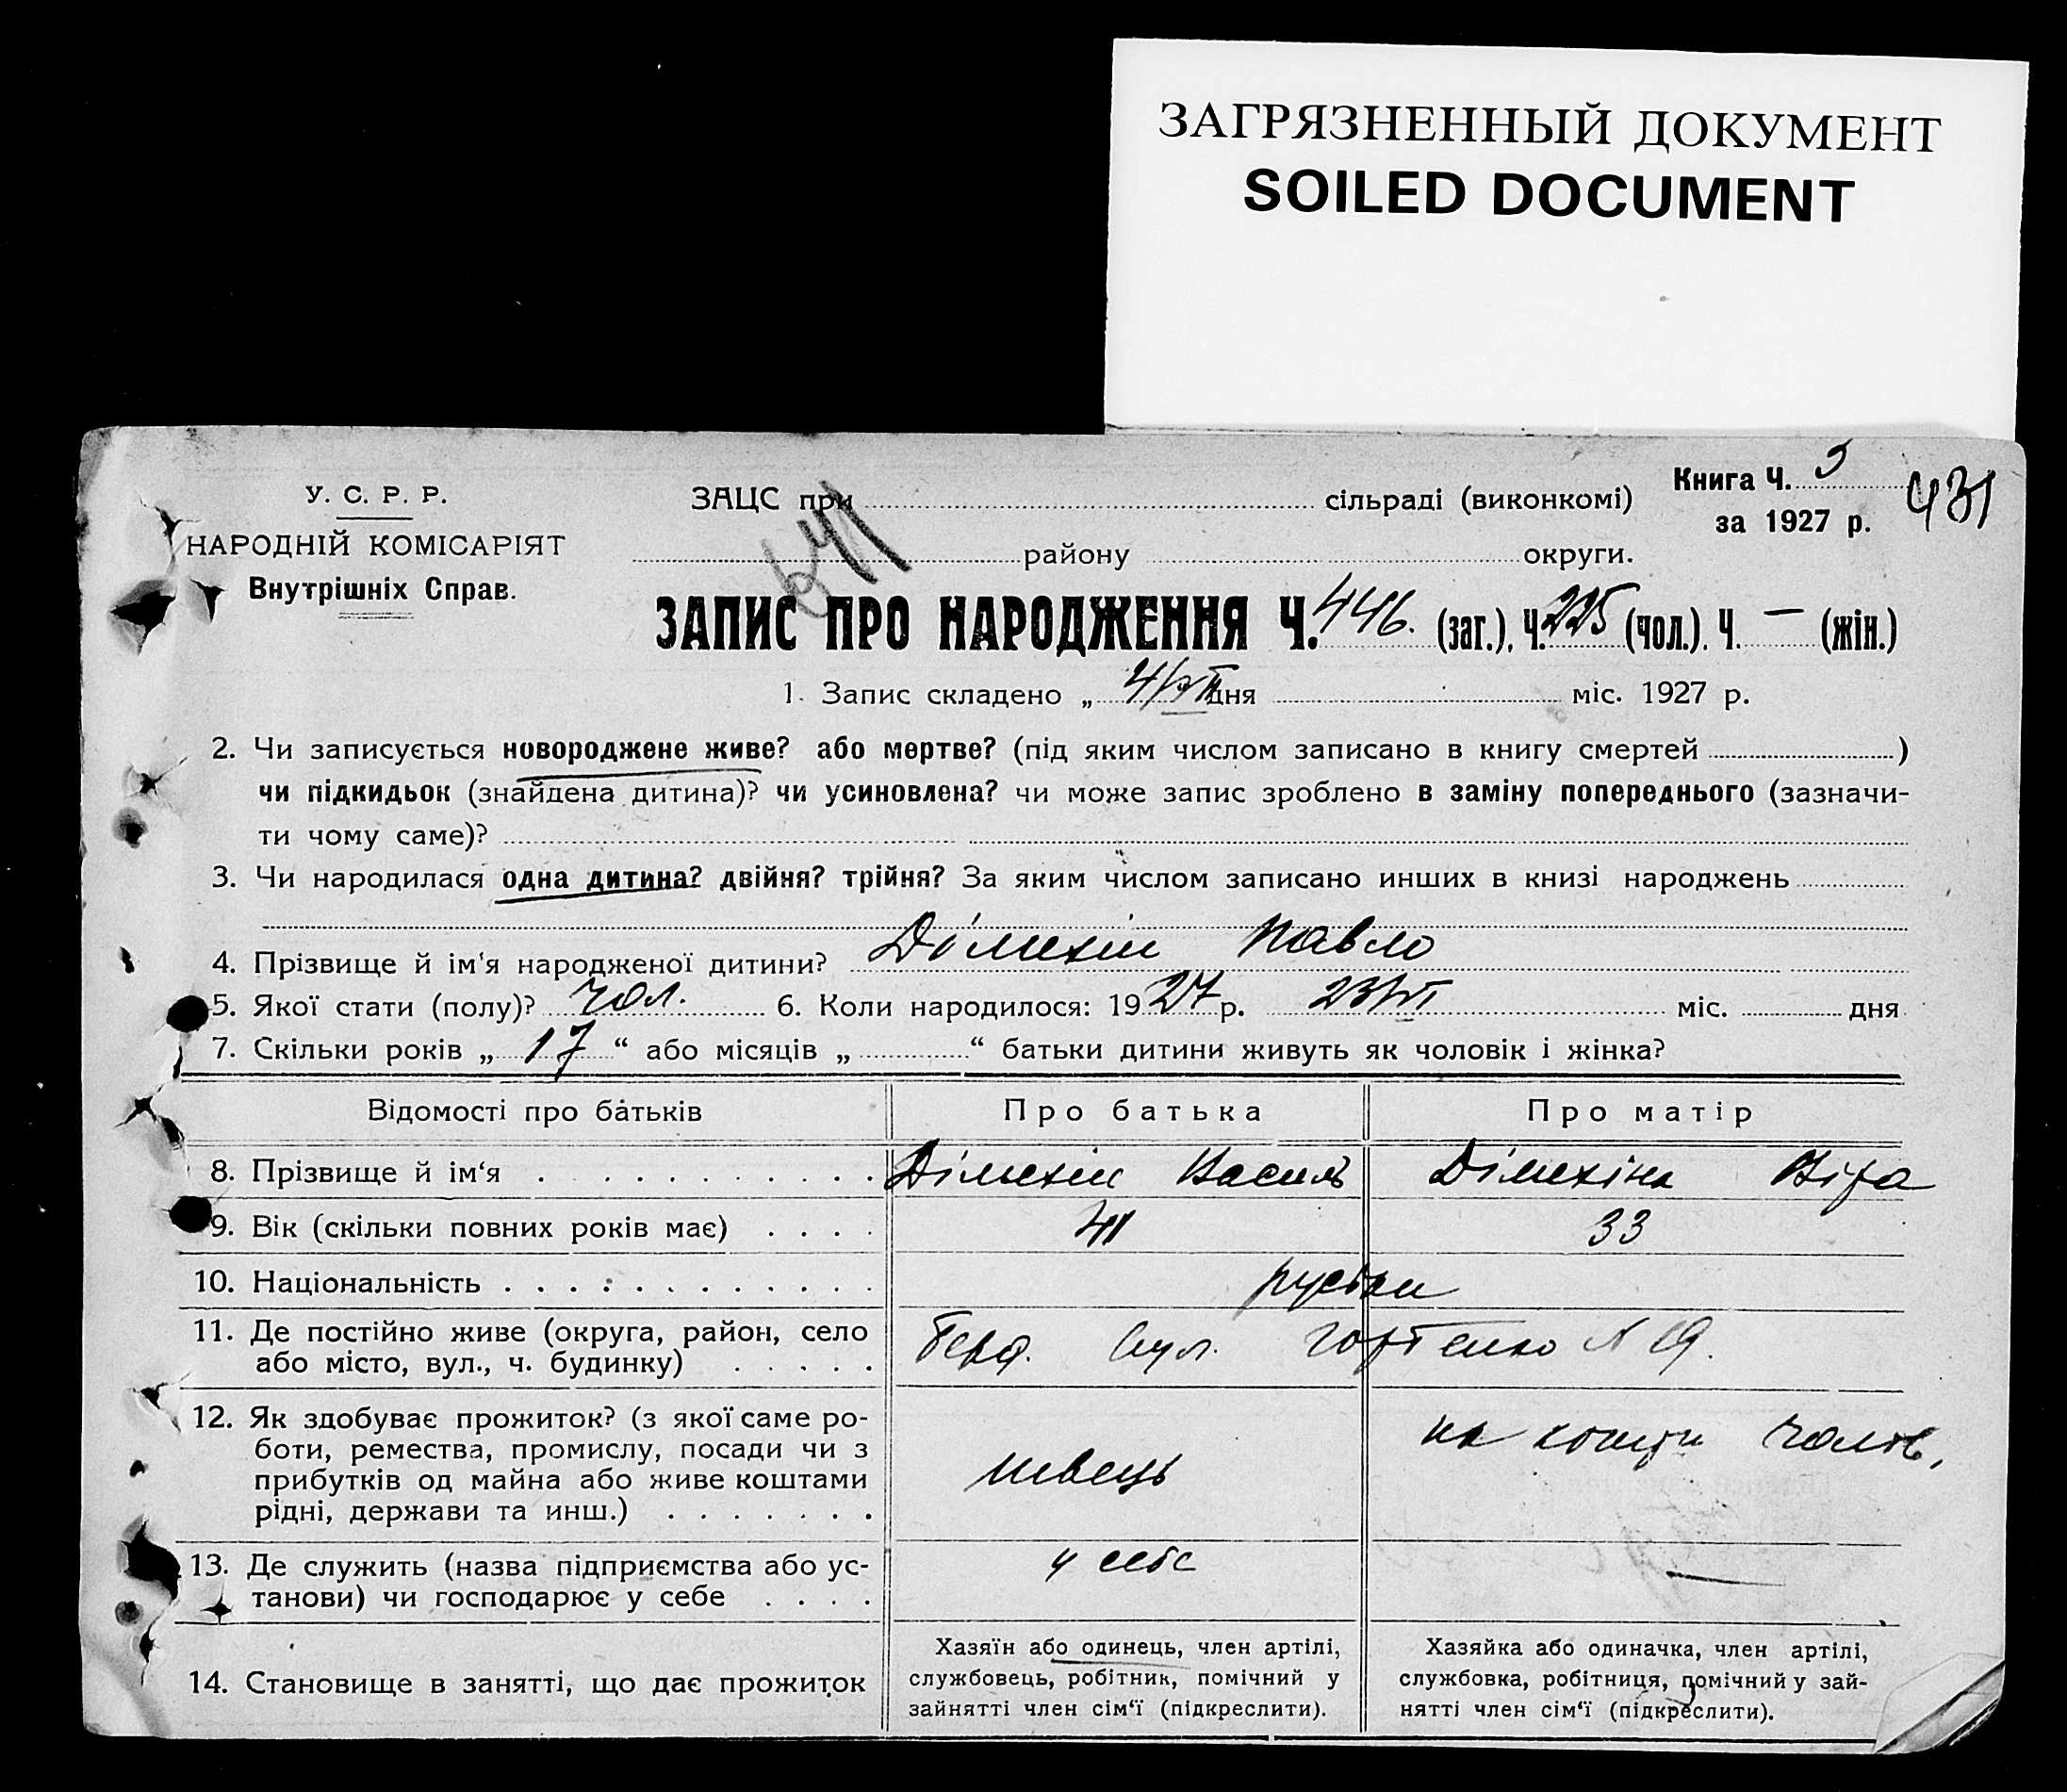 ЗАГРЯЗНЕННЫЙ ДОКУМЕНТ
SOILED DOCUMENT
У. С. Р. Р.
НАРОДНІЙ КОМІСАРІЯТ
Внутрішніх Справ.
ЗАЦС при сільраді (виконкомі)
району округи.
Книга Ч. 3
за 1927 р.
431
641
ЗАПИС ПРО НАРОДЖЕННЯ Ч. 446. (заг.), Ч. 225 (чол.). Ч. — (жін.)
1. Запис складено „ 4/VII дня міс. 1927 р.
2. Чи записується новороджене живе? або мертве? (під яким числом записано в книгу смертей )
чи підкидьок (знайдена дитина)? чи усиновлена? чи може запис зроблено в заміну попереднього (зазначи-
ти чому саме)?
3. Чи народилася одна дитина? двійня? трійня? За яким числом записано инших в книзі народжень
4. Прізвище й ім'я народженої дитини? Дімехін Павло
5. Якої стати (полу)? чол. 6. Коли народилося: 1927 р. 23/VI міс. дня
7. Скільки років „ 17 “ або місяців „ “ батьки дитини живуть як чоловік і жінка?
Відомості про батьків Про батька Про матір
8. Прізвище й ім‘я Дімехін Василь Дімехіна Віра
9. Вік (скільки повних років має) 41 33
10. Національність руські
11. Де постійно живе (округа, район, село
або місто, вул., ч. будинку)
Берд. вул. №19.
12. Як здобуває прожиток? (з якої саме ро-
боти, ремества, промислу, посади чи з
прибутків од майна або живе коштами
рідні, держави та инш.)
швець
на кошти чолов.
13. Де служить (назва підприємства або ус-
танови) чи господарює у себе
у себе —
14. Становище в занятті, що дає прожиток
Хазяїн або одинець, член артілі,
службовець, робітник, помічний у
зайнятті член сім‘ї (підкреслити).
Хазяйка або одиначка, член артілі,
службовка, робітниця, помічний у зай-
нятті член сім‘ї (підкреслити).